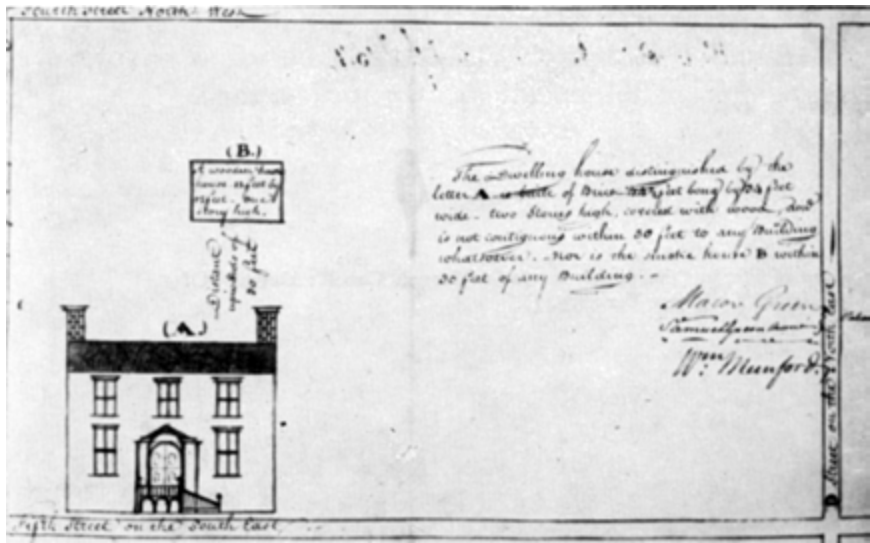 Fourth Street North West
(B.)
A wooden
house feet by
feet - one
Story high.
Distant
upwards of
30 feet
(A.)
The Dwelling house distinguished by the
letter A is built of Brick feet long by feet
wide - two Stories high, covered with wood, and
is not contiguous within 30 feet to any Building
whatsoever. - Nor is the house B within
30 feet of any Building. -
Macon Green
Samuel Green
Wm. Munford.
D Street on the North East
Fifth Street on the South East